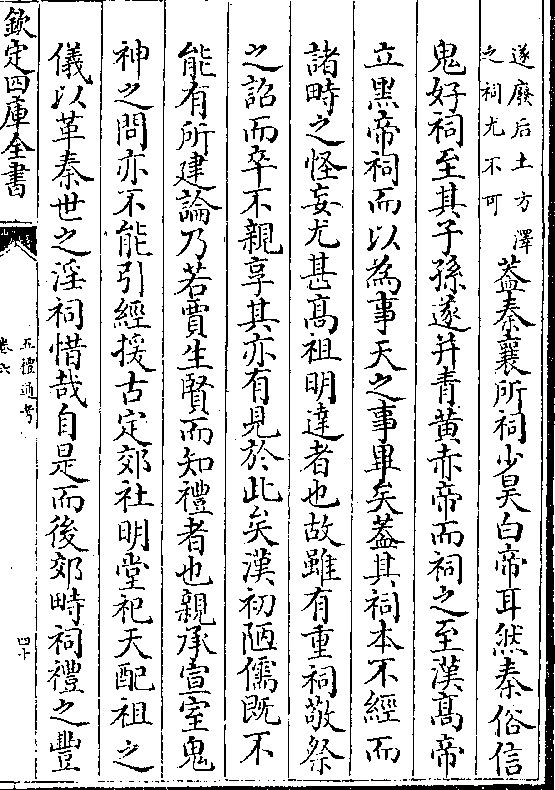 遂廢后土方澤
之祠尤不可
葢秦襄所祠少昊白帝耳然秦俗信
鬼好祠至其子孫遂并青黄赤帝而祠之至漢髙帝
立黒帝祠而以為事天之事畢矣葢其祠本不經而
諸畤之怪妄尤甚髙祖明達者也故雖有重祠敬祭
之詔而卒不親享其亦有見於此矣漢初陋儒既不
能有所建論乃若賈生賢而知禮者也親承宣室鬼
神之問亦不能引經援古定郊社明堂祀天配祖之
儀以革秦世之淫祠惜哉自是而後郊畤祠禮之豐
欽定四庫全書
五禮通考
卷六
四十